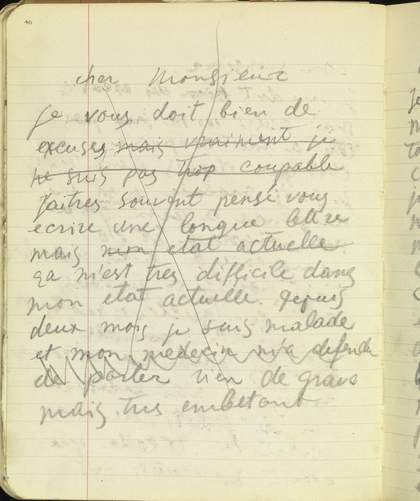 cher Monsieur
je vous doit bien de
excuses mais vraiment je
ne suis pas trop coupable
j'aitres souvent pensé vous
ecrire une longue lettre
mais mon etat actuelle
ça m'est tres difficile dans
mon etat actuelle. depuis
deux mois je suis malade
et mon medecin m'a defendu
de parler rien de grave
mais tres embetant